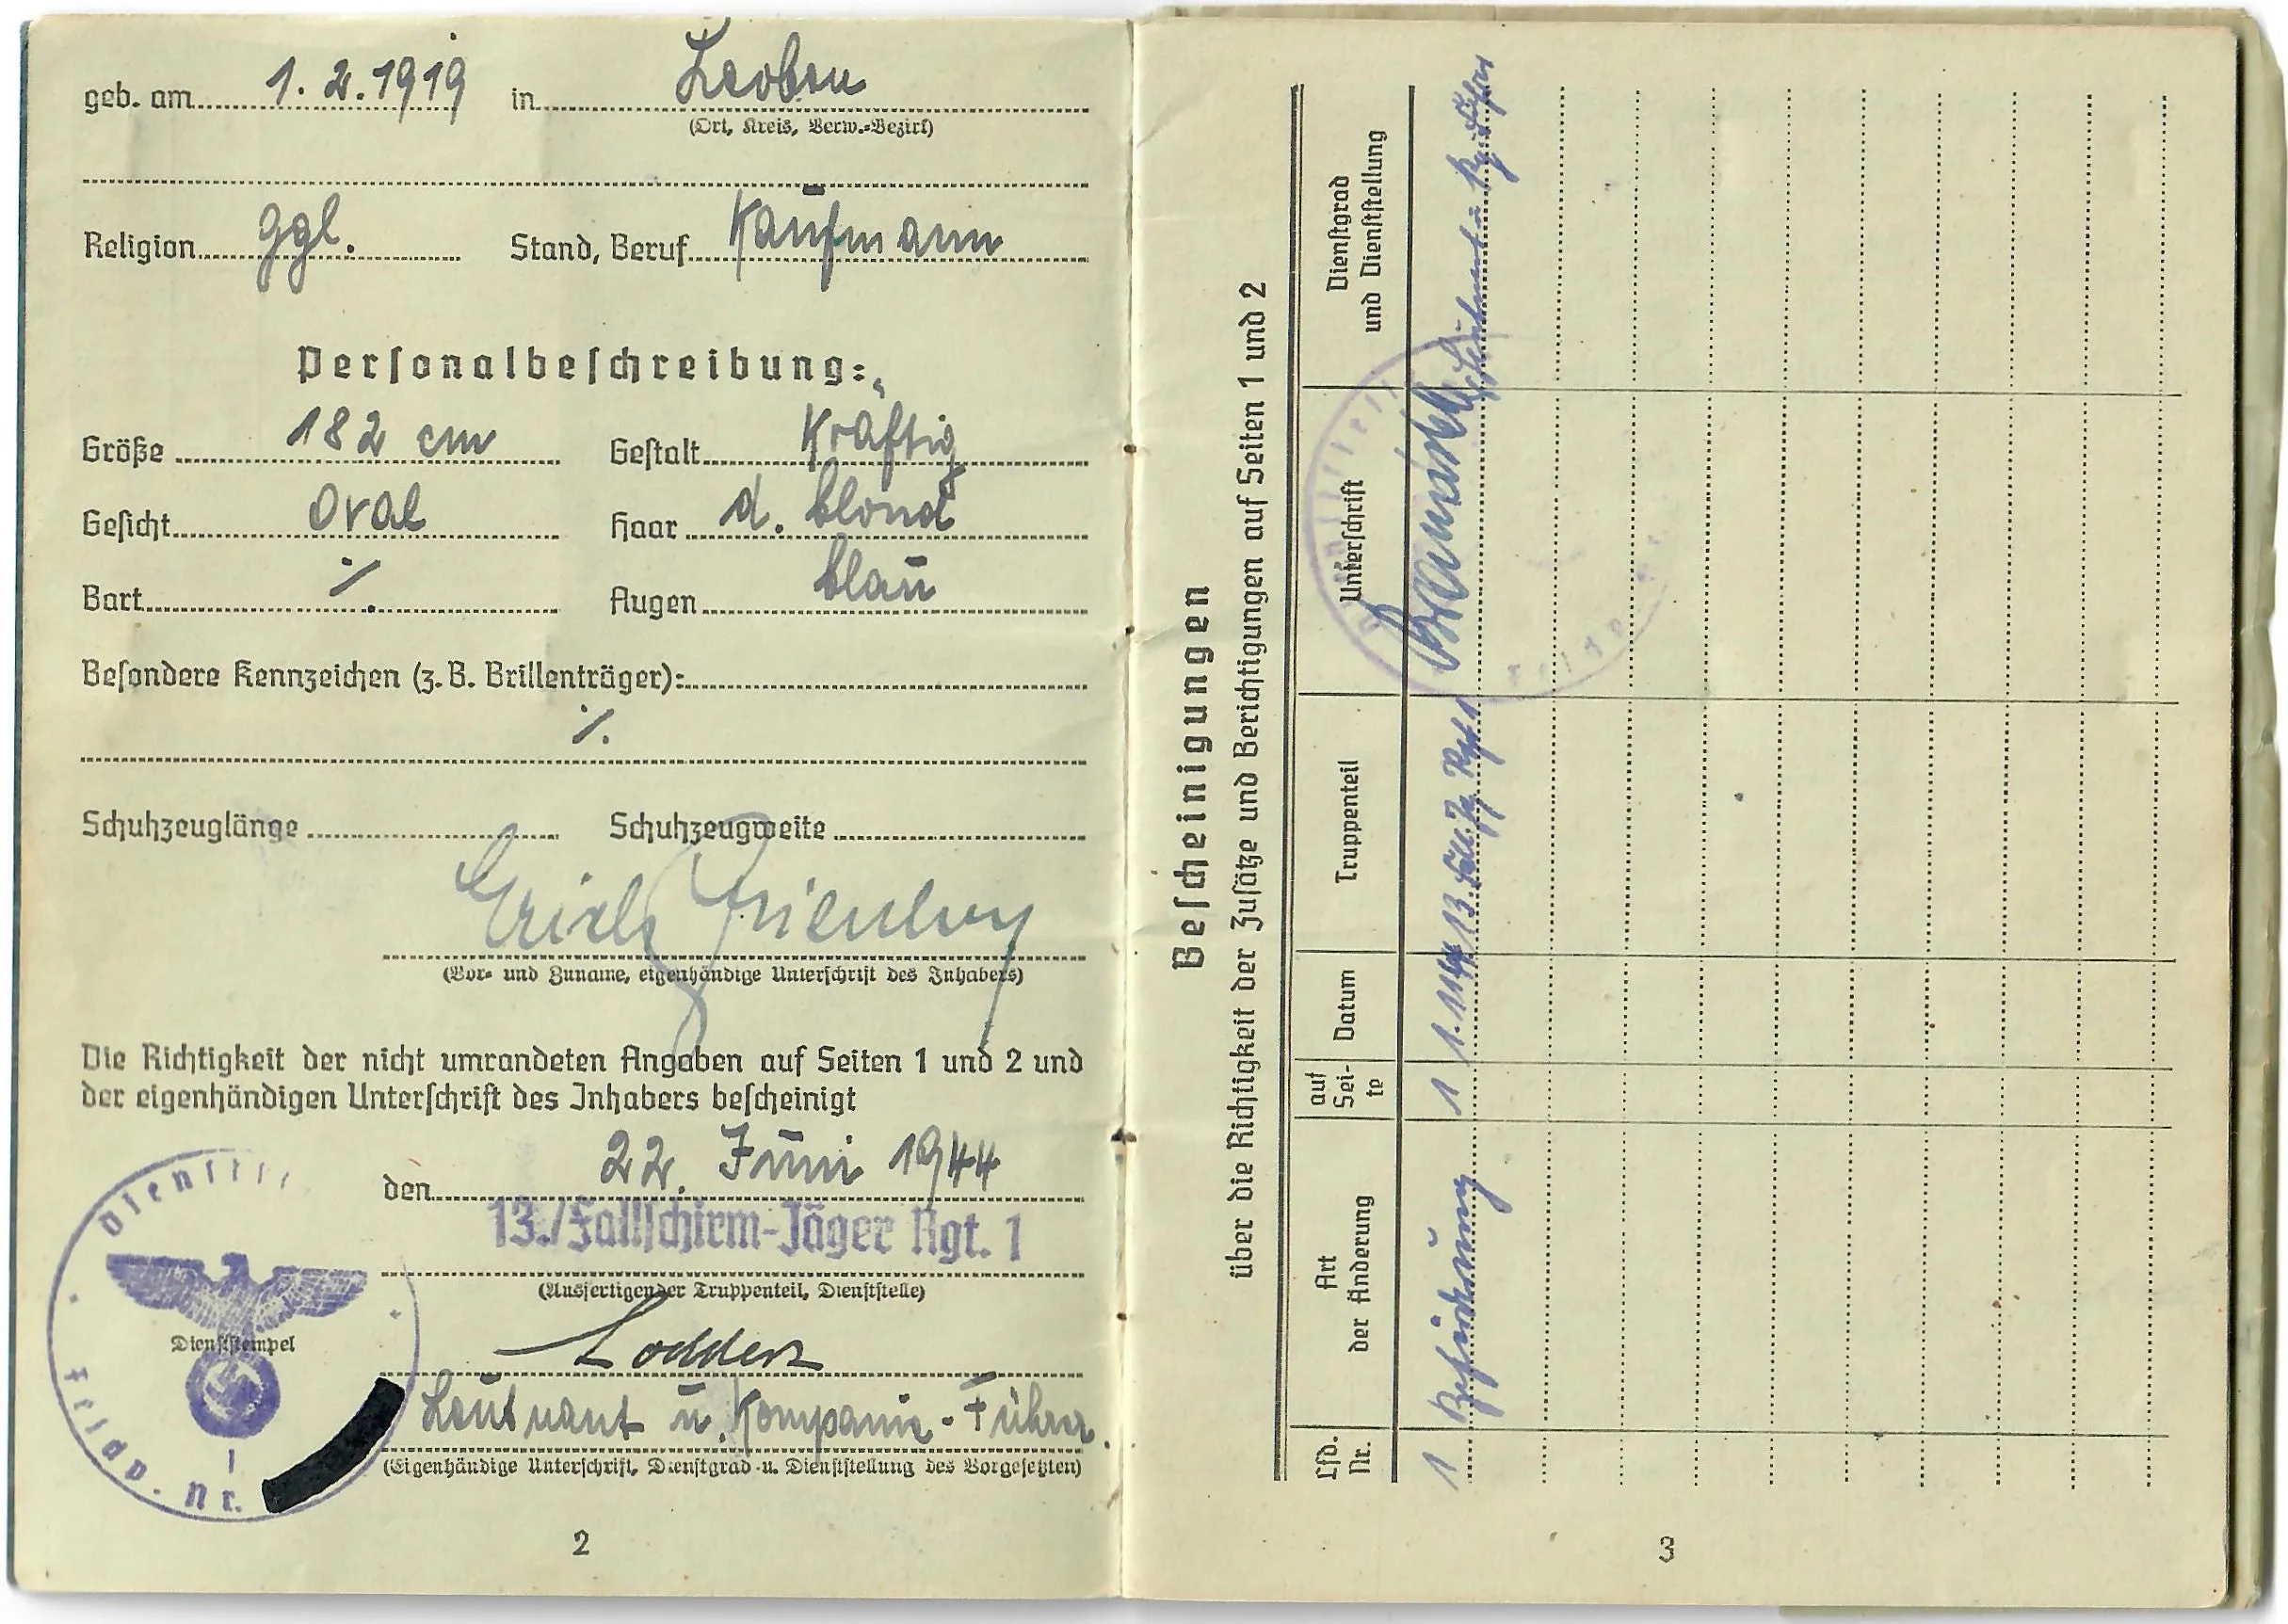 geb. am 1.2.1919 in Leoben
(Ort, Kreis, Verw.-Bezirk)
Religion ggl. Stand, Beruf Kaufmann
Personalbeschreibung:
Größe 182 cm Gestalt Kräftig
Gesicht oval Haar d. blond
Bart ⁒ Augen blau
Besondere Kennzeichen (z. B. Brillenträger):
⁒
Schuhzeuglänge Schuhzeugweite
Erich
(Vor- und Zuname, eigenhändige Unterschrift des Inhabers)
Die Richtigkeit der nicht umrandeten Angaben auf Seiten 1 und 2 und
der eigenhändigen Unterschrift des Inhabers bescheinigt
den 22. Juni 1944
13./Fallschirm-Jäger Rgt. 1
(Ausfertigender Truppenteil, Dienststelle)
Dienststempel
Feldp. Nr.
Lodders
Leutnant u. Kompanie-Führer.
(Eigenhändige Unterschrift, Dienstgrad u. Dienststellung des Vorgesetzten)
2
Bescheinigungen
über die Richtigkeit der Zusätze und Berichtigungen auf Seiten 1 und 2
Lfd. Nr. Art der Änderung auf Sei-te Datum Truppenteil Unterschrift Dienstgrad und Dienststellung
1 Beförderung 1 1.11.44 13. Fall. Jg. Rgt 1 Leutnant u. Kp. Führer
3